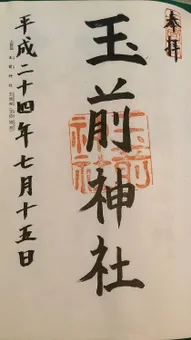 奉拝
玉前神社
玉前神社
平成二十四年七月十五日